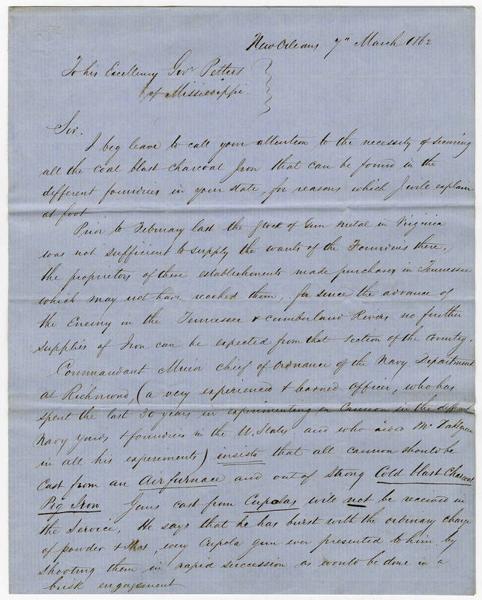 New Orleans 7th March 1862
To his Excellency Gov Pettus
of Mississippi
Sir.
I beg leave to call your attention to the necessity of securing
all the coal blast charcoal Iron that can be found in the
different foundries in your state, for reasons which I will explain
at foot
Prior to February last the stock of Gun metal in Virginia
was not sufficient to supply the wants of the Founderies there,
the proprietors of these establishments made purchases in Tennessee
which may not have reached them, for since the advance of
the Enemy in the Tennessee & Cumberland Rivers no further
supplies of Iron can be expected from that section of the Country.
Commandant chief of ordnance of the Navy Department
at Richmond (a very experienced & learned officer, who has
spent the last 30 years in experimenting on Cannon in the
Navy Yards & foundries in the U. States and who Mr
in all his experiments) insists that all cannon should be
cast from an Air furnace and out of strong Cold blast Charcoal
Pig Iron Guns cast from Cupolas will not be received in
the service, He says that he has burst with the ordinary charge
of powder & shot, every Cupola gun ever presented to him by
shooting them in rapid succession as would be done in a
brisk engagement